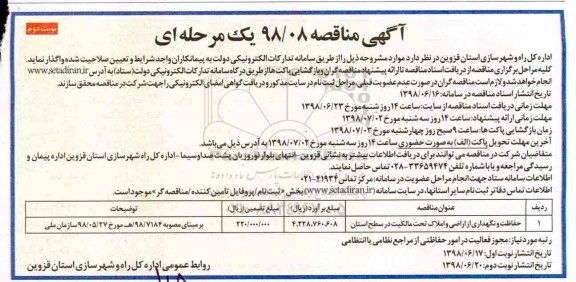 نوبت دوم
آگهی مناقصه ۹۸/۰۸ یک مرحله ای
اداره کل راه و شهرسازی استان قزوین در نظر دارد موارد مشروحه ذیل را از طریق سامانه تدارکات الکترونیکی دولت به پیمانکاران واجد شرایط و تعیین صلاحیت شده واگذار نماید.
کلیه مراحل برگزاری مناقصه از دریافت اسناد مناقصه تا ارائه پیشنهاد مناقصه گران و بازگشایی پاکت ها از طریق درگاه سامانه تدارکات الکترونیکی دولت (ستاد) به آدرس www.setadiran.ir
انجام خواهد شد و لازم است مناقصه گران در صورت عدم عضویت قبلی، مراحل ثبت نام در سایت مذکور و دریافت گواهی امضای الکترونیکی را جهت شرکت در مناقصه محقق سازند.
تاریخ انتشار اسناد مناقصه در سامانه: ۱۳۹۸/۰۶/۱۶
مهلت زمانی دریافت اسناد مناقصه از سایت: ساعت ۱۴ روز شنبه مورخ ۱۳۹۸/۰۶/۲۳
مهلت زمانی ارائه پیشنهاد: ساعت ۱۴ روز سه شنبه مورخ ۱۳۹۸/۰۷/۰۲
زمان بازگشایی پاکت ها: ساعت ۹ صبح روز چهارشنبه مورخ ۱۳۹۸/۰۷/۰۳
آخرین مهلت تحویل پاکت (الف) به صورت حضوری ساعت ۱۴ روز سه شنبه ۱۳۹۸/۰۷/۰۲ به آدرس ذیل می باشد.
متقاضیان شرکت در مناقصه می توانند برای دریافت اطلاعات بیشتر به نشانی قزوین - انتهای بلوار نوروزیان پشت صدا و سیما - اداره کل راه و شهرسازی استان قزوین اداره پیمان و
رسیدگی مراجعه و یا با شماره تلفن ۳۳۶۵۹۴۷۴-۰۲۸ تماس حاصل نمایند.
اطلاعات سامانه ستاد جهت انجام مراحل عضویت در سامانه: مرکز تماس ۴۱۹۳۴-۰۲۱
اطلاعات تماس دفاتر ثبت نام سایر استانها، در سایت سامانه (www.setadiran.ir) بخش «ثبت نام/پروفایل تامین کننده/مناقصه گر» موجود است.
ردیف عنوان مناقصه مبلغ برآورد (ریال) مبلغ تضمین (ریال) توضیحات
۱ حفاظت و نگهداری از اراضی و املاک تحت مالکیت در سطح استان ۴.۳۳۸.۷۶۰.۶۰۸ ۲۲۰/۰۰۰/۰۰۰ بر مبنای مصوبه ۹۸/۷۱۸۴/هـ مورخ ۹۸/۰۵/۲۷ سازمان ملی
رتبه مورد نیاز: مجوز فعالیت در امور حفاظتی از مراجع نظامی یا انتظامی
تاریخ انتشار نوبت اول: ۱۳۹۸/۰۶/۱۷
تاریخ انتشار نوبت دوم: ۱۳۹۸/۰۶/۲۰
روابط عمومی اداره کل راه و شهرسازی استان قزوین